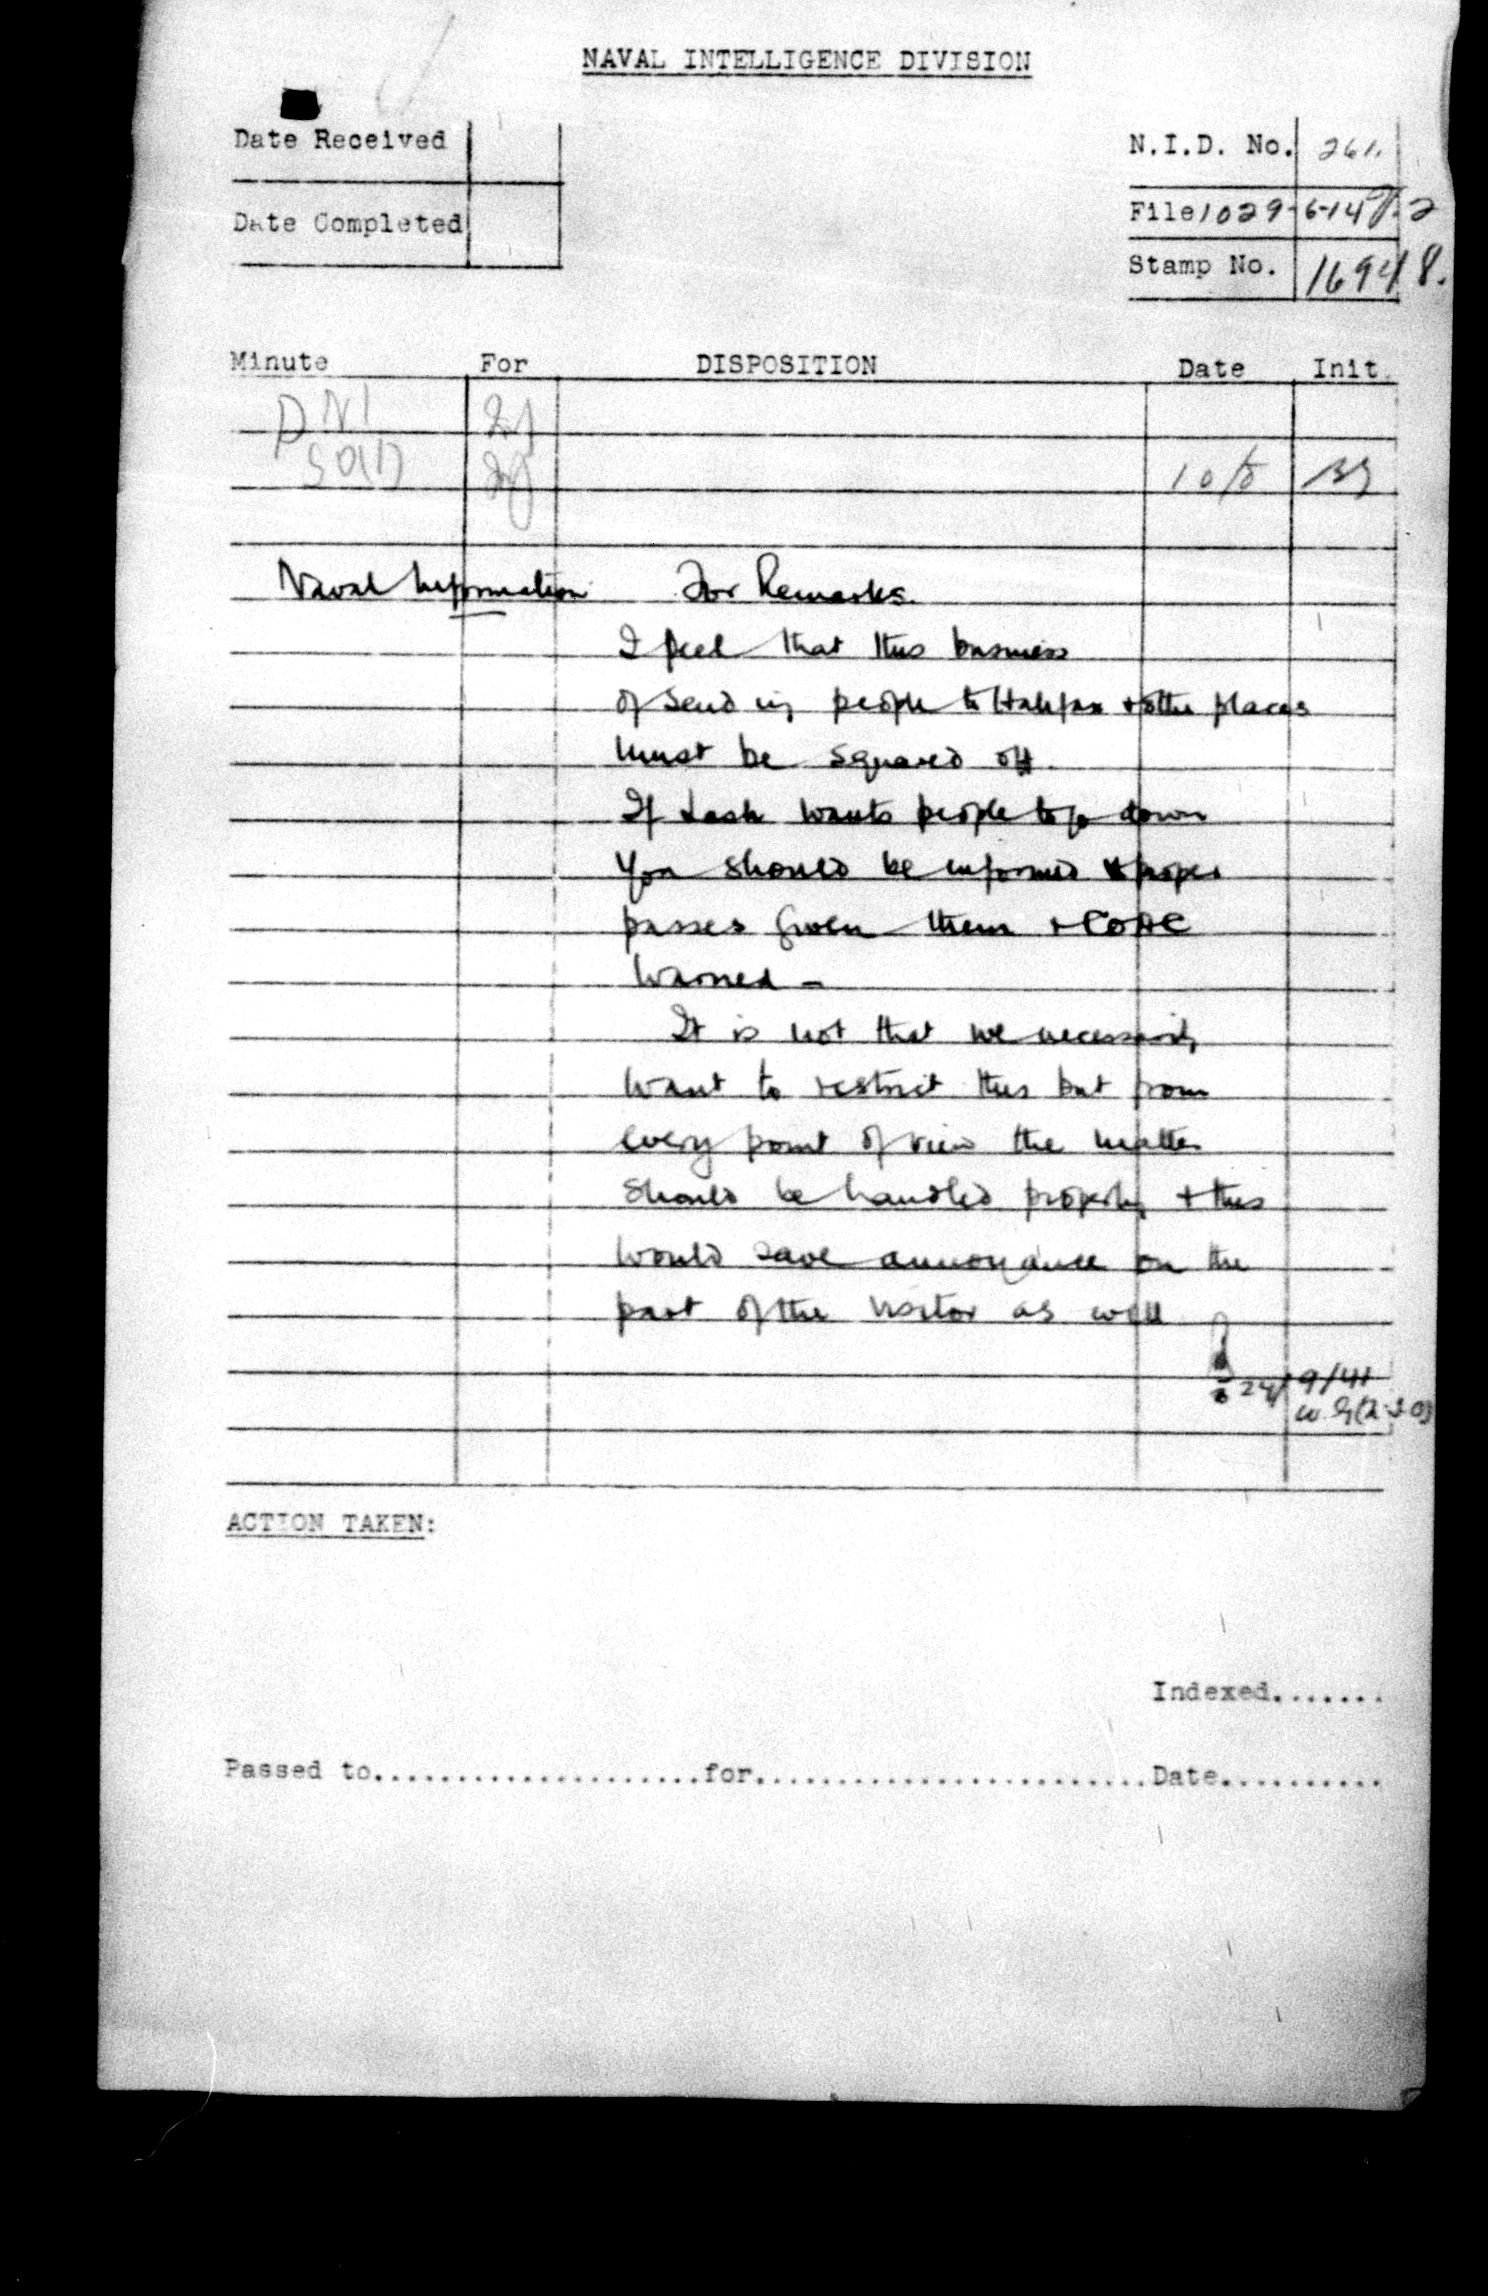 NAVAL INTELLIGENCE DIVISION
Date Received
Date Completed
N.I.D. No. 261.
File 1029-6-14
Stamp No. 16948.
Minute For DISPOSITION Date Init.
DNI Inf
SO(I) Inf 10/5
Naval Information For Remarks.
I feel that this business
of sending people to Halifax + other places
must be squared off.
If Lash wants people to go down
you should be informed & proper
passes given them + COAC
warned —
It is not that we necessarily
want to restrict this but from
every point of view the matter
should be handled properly + this
would save annoyance on the
part of the visitor as well
24/9/41
ACTION TAKEN:
Indexed.......
Passed to....................for........................Date..........